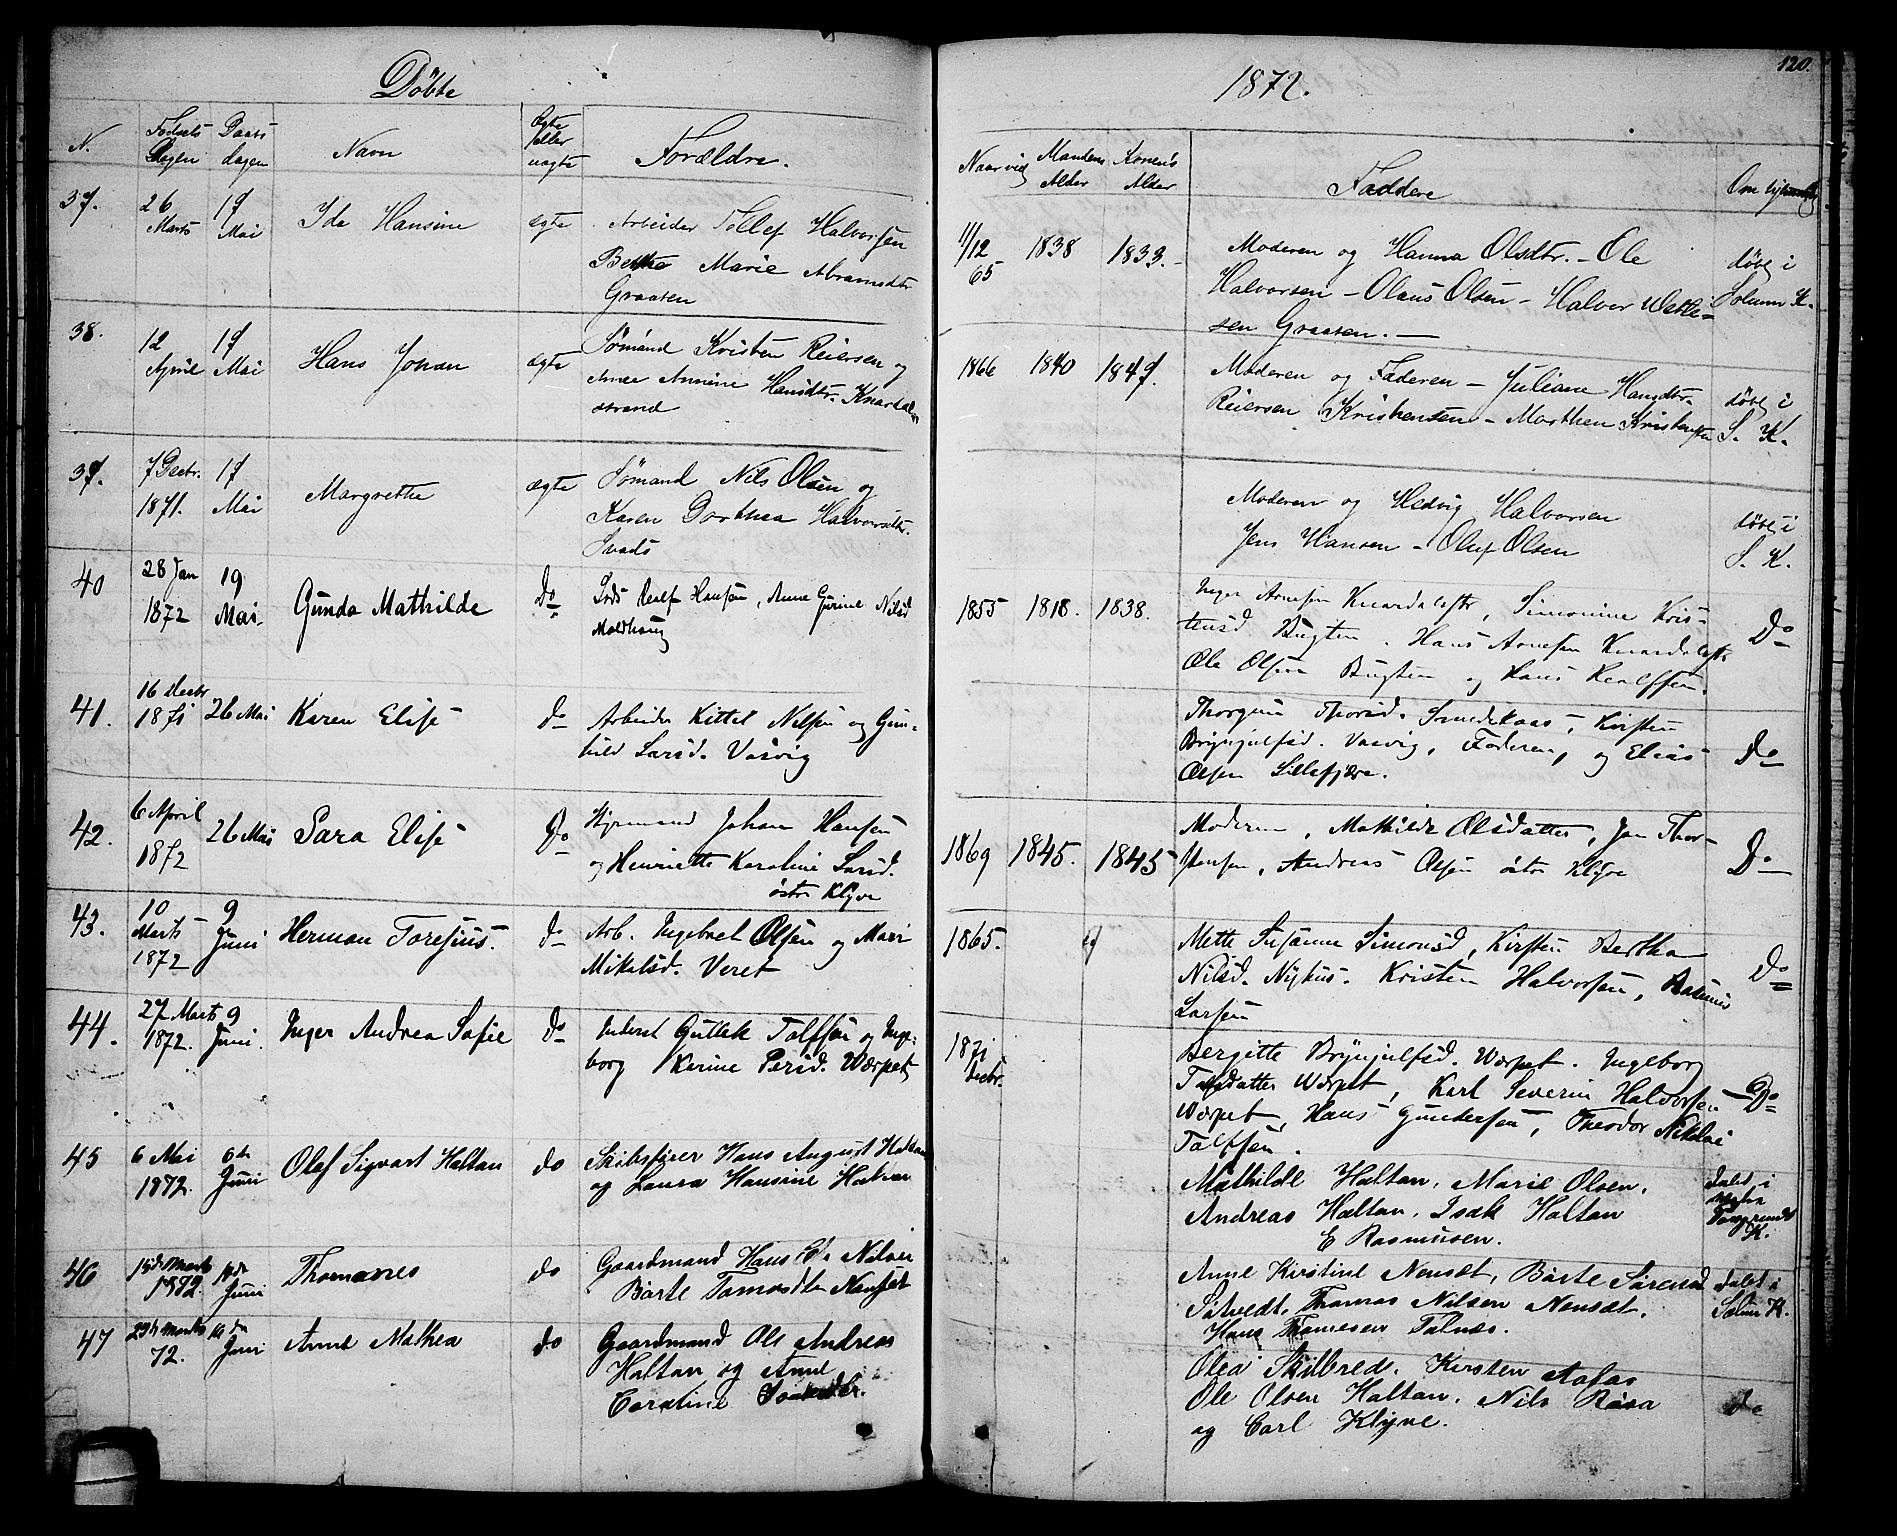 Døbte
1872.
120.
N.
Fødsels Dagen
Daabs dagen
Navn
Ægte eller uægte
Forældre.
Naar vied
Mandens Alder
Konens Alder
Faddere
37.
26 Marts
19 Mai
Ida Hansine
ægte
Arbeider Tellef Halvorsen
Marie Abramsdtr
Graaten
11/12 65
1838
1833.
Moderen og Hanna Olsdtr. - Ole
Halvorsen - Olaus Olsen - Halvor
sen Graaten. -
døbt i
Solum K.
38.
12 April
19 Mai
Hans Johan
ægte
Sømand Kristen Reiersen og
Anne Annine Hansdtr. Knardal
strand
1866
1840
1847.
Moderen og Faderen - Juliane Hansdtr.
Reiersen Kristensen - Marthen Kristensen
døbt i
S. K.
39.
7 Decbr. 1871.
19 Mai
Margrethe
ægte
Sømand Nils Olsen og
Karen Dorthea Halvorsdtr.
Moderen og Hedvig Halvorsen
Jens Hansen - Oluf Olsen
døbt i
S. K.
40
28 Jan 1872
19 Mai
Gunda Mathilde
Do
Hansen, Anne Gurine Nilsd
Moldhaug
1855
1818.
1838.
Inger Arnesen Knardalsstr, Simonine Kris-
tensd Bugten. Hans Arnesen Knardalsstr.
Ole Olsen Bugten og Hans Realfsen.
Do
41.
16 Decbr 1871
26 Mai
Karen Elise
do
Arbeider Kittel Nilsen og Gun-
hild Larsd. Vasvig
Thorsd.
Brynjulfsd. Vasvig, Faderen, og Elias
Olsen Lillekjære.
Do
42.
6 April 1872
26 Mai
Sara Elise
Do
Styrmand Johan Hansen
og Henriette Karoline Larsd.
østre Klyve
1869
1845.
1845
Moderen, Mathilde Olsdatter, Jan Thor-
stensen, Andreas Olsen østre Klyve
Do
43.
10 Marts 1872
9 Juni
Herman Toresius.
do
Arb. Ingebret Olsen og Mari
Mikelsd. Veret
1865.
Mette Susanne Simonsd, Kirsten Bertha
Nilsd. Nyhus. Kristen Halvorsen, Rasmus
Larsen
Do
44.
27 Marts 1872.
9 Juni.
Inger Andrea Sofie
do
Inderst Gullek Tolfsen og Inge-
borg Karine Persd. Værpet
1871 Decbr.
Bergitte Brynjulfsd. Værpet. Ingeborg
Værpet, Karl Severin Halvorsen
Værpet, Hans Gundersen, Theodor Nikolai
Tolfsen.
Do
45
6 Mai 1872.
Juni
Olaf Sigvart Haltan
do
Skibsfører Hans August Haltan
og Laura Hansine Haltan
Mathilde Haltan. Marie Olsen.
Andreas Haltan. Isak Haltan
E Rasmusen.
døbt i
K.
46
Marts 1872.
Juni
Thomanes
do
Gaardmand Hans Nilsen
Børte Tomasdtr Nensæt
Anne Kirstine Nensæt, Børte Sørensd
Thomas Nilsen Nensæt.
Hans Thomesen Tolnæs.
døbt i
Solum K.
47
Marts 72.
Juni
Anne Mathea
do
Gaardmand Ole Andreas
Haltan og Anne
Caroline
Olea Skilbred. Kirsten Aafos
Ole Olsen Haltan. Nils Røra
og Carl Klyve.
do